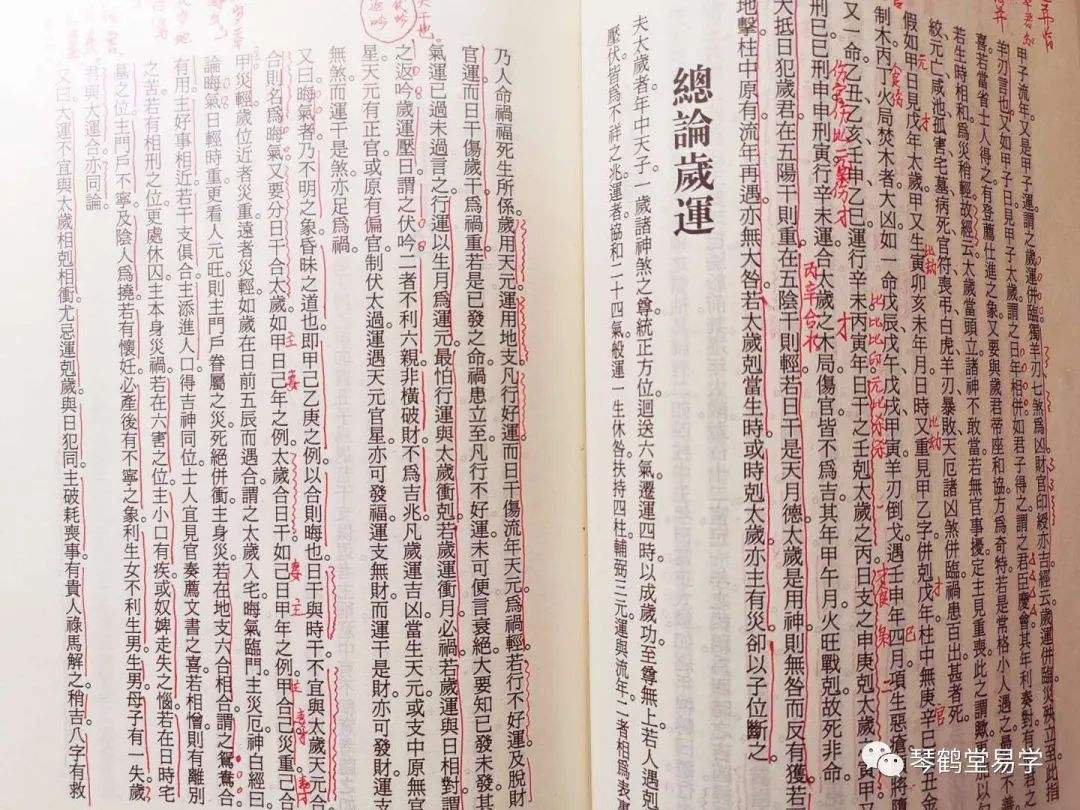 甲子流年又是甲子運謂之歲運併臨獨羊刃七煞爲凶財官印綬亦吉經云歲運併臨災殃立至此指
羊刃言也又如甲子日見甲子太歲謂之日年相併如君子得之謂之君臣慶會其年利奏對有
喜若當省士人得之有登薦仕進之象又要與歲君帝座和協方爲奇特若是常格小人遇之最不
若生時相和爲災稍輕故經云太歲當頭立諸神不敢當若無官事擾定主見重喪此之謂歟
絞元亡咸池孤害宅墓病死官符喪弔白虎羊刃暴敗天厄諸凶煞併臨禍患百出甚者死
假如甲日見戊年太歲甲又生寅卯亥未年月日時又重見甲乙字併剋戊年柱中無庚辛巳酉丑
制木丙丁火局焚木者大凶如一命戊辰戊午戊戌甲寅羊刃倒戈遇壬申年四月項生惡瘡將
又一命乙丑乙亥壬申乙巳運行辛未丙寅年日干之壬剋太歲之丙日支之申庚剋太歲寅甲又
刑巳巳刑申申刑寅行辛未運合太歲之木局傷官皆不爲吉其年甲午月火旺戰剋故死非命
大抵日犯歲君在五陽干則重在五陰干則輕若日干是天月德太歲是用神則無咎而反有獲若
地擊柱中原有流年再遇亦無大咎若太歲剋當生時或時剋太歲亦主有災卻以子位斷之
總論歲運
夫太歲者年中天子一歲諸神煞之尊統正方位迴送六氣遷運四時以成歲功至尊無上若人遇剋
壓伏皆爲不祥之兆運者協和二十四氣般運一生休咎扶持四柱輔弼三元運與流年二者相爲表裏
乃人命禍福死生所係歲用天元運用地支凡行好運而日干傷流年天元爲禍輕若行不好運及脫財
官運而日干傷歲干爲禍重若是已發之命禍患立至凡行不好運未可便言衰絕大要知已發未發其
氣運已過未過言之行運以生月爲運元最怕行運與太歲衝剋若歲運衝月必禍若歲運與日相對謂
之返吟歲運壓日謂之伏吟二者不利六親非橫破財不爲吉兆凡歲運吉凶當生天元或支中原無官
星天元有正官或原有偏官制伏太過運遇天元官星亦可發福運支無財而運干是財亦可發財運支
無煞而運干是煞亦足爲禍
又曰晦氣者乃不明之象昏昧之道也即甲己乙庚之例以合則晦也日干與時干不宜與太歲天元合
合則名爲晦氣又要分日干合太歲如甲日己年之例太歲合日干如己日甲年之例甲合己災重己合
甲災輕歲位近者災重遠者災輕如歲在日前五辰而遇合謂之太歲入宅晦氣臨門主災厄神白經曰
論晦氣日輕時重更看人元旺則主門戶眷屬之災死絕併衝主身災若在地支六合相合謂之鴛鴦合
有用主好事相近若干支俱合主添進人口得吉神同位士人宜見官奏薦文書之喜若相憎則有離別
之苦若有相刑之位更處休囚主本身災禍若在六害之位主小口有疾或奴婢走失之惱若在日時宅
墓之位主門戶不寧及陰人爲撓若有懷妊必產後有不寧之象利生女不利生男生男母子有一失歲
君與大運合亦同論
又曰大運不宜與太歲相剋相衝尤忌運剋歲與日犯同主破耗喪事有貴人祿馬解之稍吉八字有救
丙辛合水
琴鹤堂易学